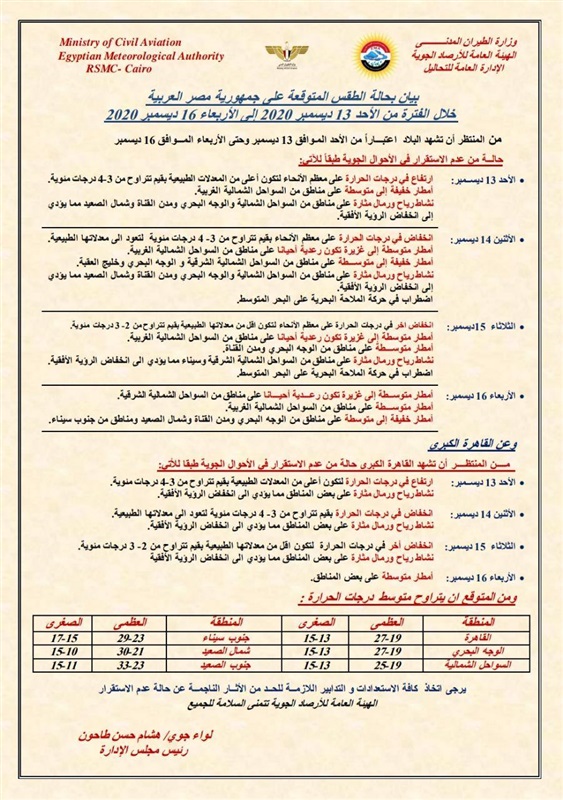 Ministry of Civil Aviation
Egyptian Meteorological Authority
RSMC- Cairo
وزارة الطيران المدنى
الهيئة العامة للأرصاد الجوية
الإدارة العامة للتحاليل
بيان بحالة الطقس المتوقعة على جمهورية مصر العربية
خلال الفترة من الأحد 13 ديسمبر 2020 إلى الأربعاء 16 ديسمبر 2020
من المنتظر أن تشهد البلاد اعتباراً من الأحد الموافق 13 ديسمبر وحتى الأربعاء الموافق 16 ديسمبر
حالة من عدم الاستقرار في الأحوال الجوية طبقاً للآتي:
• الأحد 13 ديسمبر: ارتفاع في درجات الحرارة على معظم الأنحاء لتكون أعلى من المعدلات الطبيعية بقيم تتراوح من 3-4 درجات مئوية.
أمطار خفيفة إلى متوسطة على مناطق من السواحل الشمالية الغربية.
نشاط رياح ورمال مثارة على مناطق من السواحل الشمالية والوجه البحري ومدن القناة وشمال الصعيد مما يؤدي
إلى انخفاض الرؤية الأفقية.
• الأثنين 14 ديسمبر: انخفاض في درجات الحرارة على معظم الأنحاء بقيم تتراوح من 3- 4 درجات مئوية لتعود الى معدلاتها الطبيعية.
أمطار متوسطة إلى غزيرة تكون رعدية أحيانا على مناطق من السواحل الشمالية الغربية.
أمطار خفيفة إلى متوسطة على مناطق من السواحل الشمالية الشرقية و الوجه البحري وخليج العقبة.
نشاط رياح ورمال مثارة على مناطق من السواحل الشمالية والوجه البحري ومدن القناة وشمال الصعيد مما يؤدي
إلى انخفاض الرؤية الأفقية.
اضطراب في حركة الملاحة البحرية على البحر المتوسط.
• الثلاثاء 15ديسمبر: انخفاض آخر في درجات الحرارة على معظم الأنحاء لتكون اقل من معدلاتها الطبيعية بقيم تتراوح من 2- 3 درجات مئوية.
أمطار متوسطة إلى غزيرة تكون رعدية أحيانا على مناطق من السواحل الشمالية.
أمطار متوسطة على مناطق من الوجه البحري ومدن القناة.
نشاط رياح ورمال مثارة على مناطق من السواحل الشمالية الشرقية وسيناء مما يؤدي الى انخفاض الرؤية الأفقية.
اضطراب في حركة الملاحة البحرية على البحر المتوسط.
• الأربعاء 16 ديسمبر: أمطار متوسطة إلى غزيرة تكون رعدية أحيانا على مناطق من السواحل الشمالية الشرقية.
أمطار متوسطة على مناطق من السواحل الشمالية الغربية.
أمطار خفيفة إلى متوسطة على مناطق من الوجه البحري ومدن القناة وشمال الصعيد ومناطق من جنوب سيناء.
وعن القاهرة الكبرى
من المنتظر أن تشهد القاهرة الكبرى حالة من عدم الاستقرار في الأحوال الجوية طبقا للآتي:
• الأحد 13 ديسمبر: ارتفاع في درجات الحرارة لتكون أعلى من المعدلات الطبيعية بقيم تتراوح من 3-4 درجات مئوية.
نشاط رياح ورمال مثارة على بعض المناطق مما يؤدي إلى انخفاض الرؤية الأفقية.
• الأثنين 14 ديسمبر: انخفاض في درجات الحرارة بقيم تتراوح من 3- 4 درجات مئوية لتعود الى معدلاتها الطبيعية.
نشاط رياح ورمال مثارة على بعض المناطق مما يؤدي الى انخفاض الرؤية الأفقية.
• الثلاثاء 15 ديسمبر: انخفاض آخر في درجات الحرارة لتكون اقل من معدلاتها الطبيعية بقيم تتراوح من 2- 3 درجات مئوية.
نشاط رياح ورمال مثارة على بعض المناطق مما يؤدي الى انخفاض الرؤية الأفقية.
• الأربعاء 16 ديسمبر: أمطار متوسطة على بعض المناطق.
ومن المتوقع ان يتراوح متوسط درجات الحرارة :
المنطقة العظمى الصغرى المنطقة العظمى الصغرى
القاهرة 27-19 15-13 جنوب سيناء 29-23 17-15
الوجه البحري 27-19 15-13 شمال الصعيد 30-21 15-10
السواحل الشمالية 25-19 15-13 جنوب الصعيد 33-23 15-11
يرجى اتخاذ كافة الاستعدادات و التدابير اللازمة للحد من الآثار الناجمة عن حالة عدم الاستقرار
الهيئة العامة للأرصاد الجوية تتمنى السلامة للجميع
لواء جوي/ هشام حسن طاحون
رئيس مجلس الإدارة